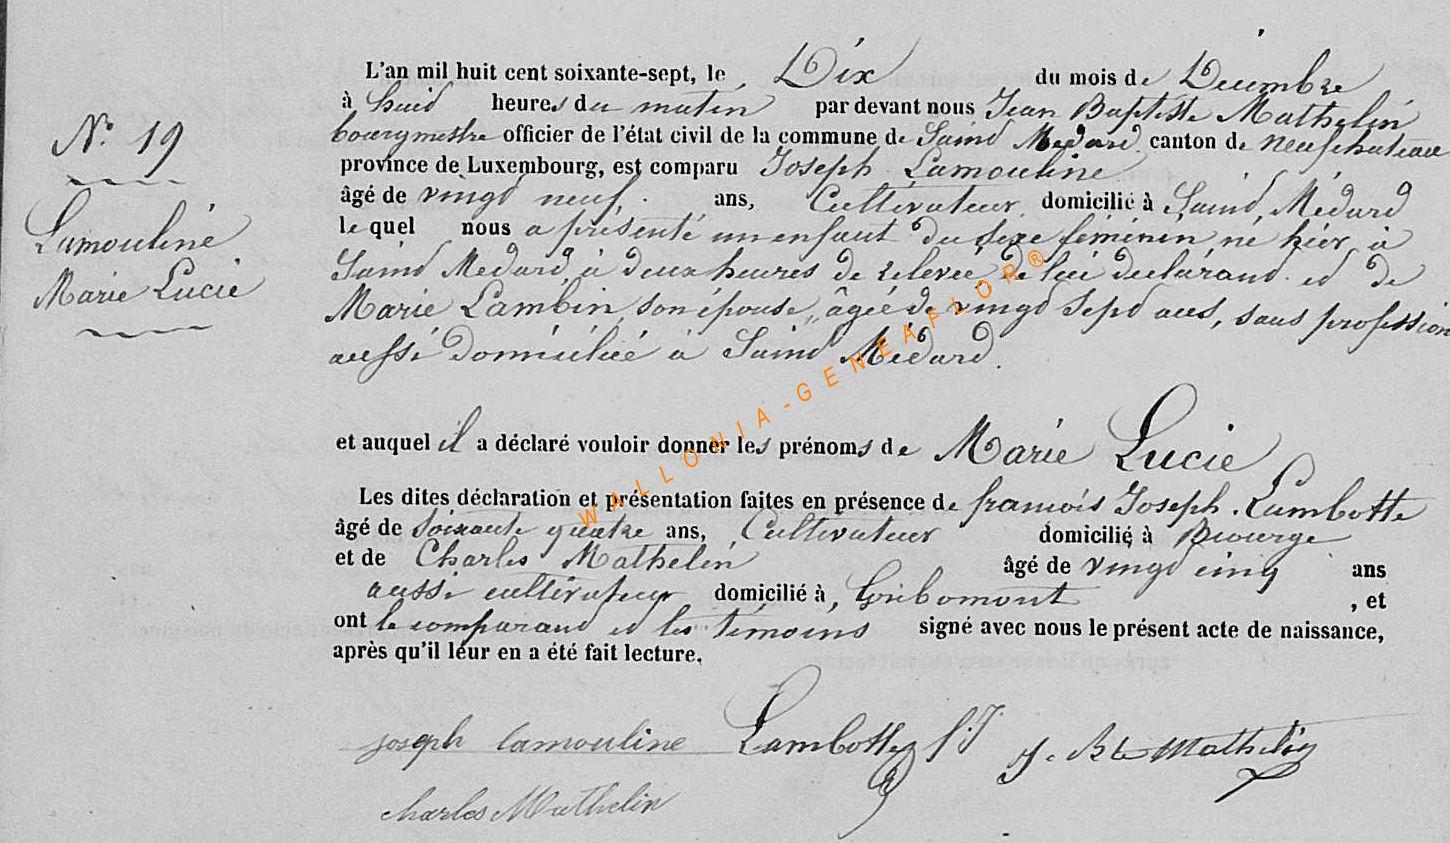 N.º 19
Lamouline
Marie Lucie
L'an mil huit cent soixante-sept, le Dix du mois de Décembre
à huid heures du matin par devant nous Jean Baptiste Mathelin
bourgmestre officier de l'état civil de la commune de Saind Médard canton de neufchateau
province de Luxembourg, est comparu Joseph Lamouline
âgé de vingd neuf ans, Cultivateur domicilié à Saind Médard
le quel nous a présenté un enfant du sexe féminin né hier à
Saind Médard à deux heures de relevée de lui déclarand ed de
Marie Lambin son épouse, âgée de vingd sepd ans, sans profession
aussi domiciliée à Saind Médard.
et auquel il a déclaré vouloir donner les prénoms de Marie Lucie
Les dites déclaration et présentation faites en présence de francois Joseph Lambotte
âgé de soixante quatre ans, Cultivateur domicilié à Biourge
et de Charles Mathelin âgé de vingd cinq ans
aussi cultivateur domicilié à Gribomont, et
ont le comparand ed les témoins signé avec nous le présent acte de naissance,
après qu'il leur en a été fait lecture.
joseph lamouline Lambotte f.J J. Bte Mathelin
charles Mathelin
WALLONIA-GENEAFLOR®